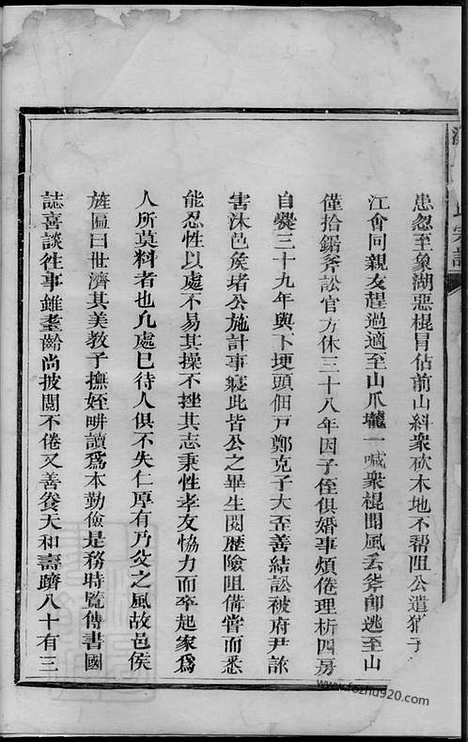 患忽至象湖惡棍冒佔前山糾衆砍木地不幫阻公遣猶子
江會同親友趕過適至山爪壠一喊衆棍聞風丢斧卽逃至山
僅拾鋸斧訟官方休三十八年因子侄俱婚事煩倦理析四房
自㸑三十九年與下埂頭佃戸鄭克子大歪善結訟被府尹訴
害沐邑矦堵公施計事寢此皆公之畢生閱歷險阻備嘗而悉
能忍性以處不易其操不挫其志秉性孝友恊力而卒起家爲
人所莫料者也凢處巳待人俱不失仁厚有乃父之風故邑矦
旌匾曰世濟其美教子撫姪畊讀爲本勤儉是務時覽傳書國
誌喜談徃事錐耋齡尚披閱不倦又善養天和壽躋八十有三
氏宗譜
www.fozhu920.com